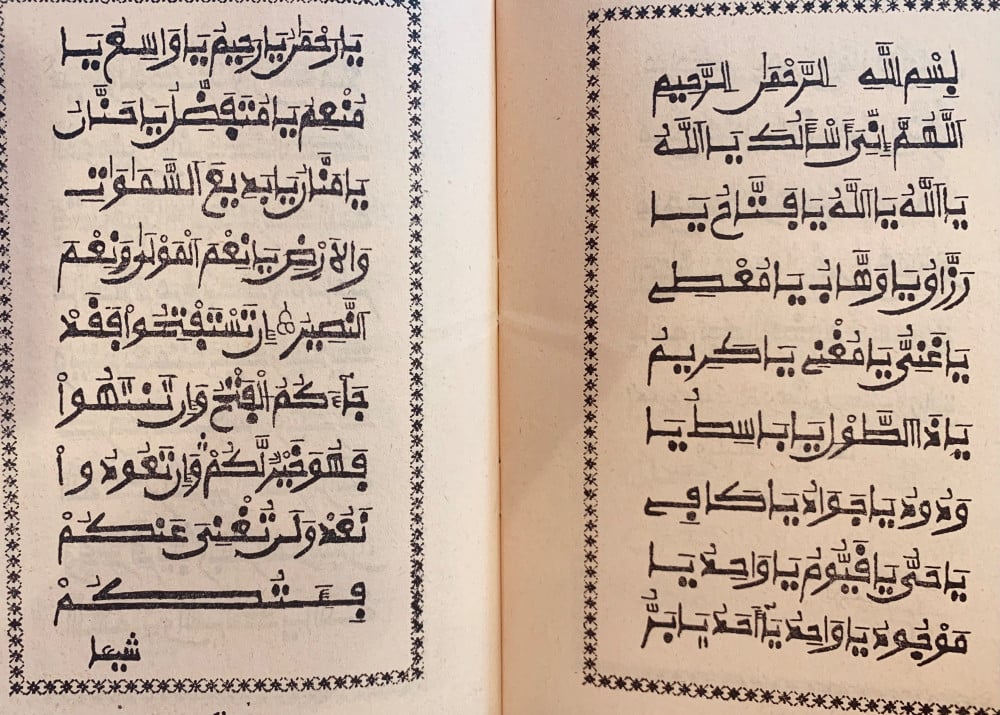 بِسْمِ اللَّهِ الرَّحْمَٰنِ الرَّحِيمِ
اَللَّهُمَّ إِنِّي أَسْأَلُكَ يَا اَللَّهُ
يَا اَللَّهُ يَا اَللَّهُ يَا فَتَّاحُ يَا
رَزَّاقُ يَا وَهَّابُ يَا مُعْطِي
يَا غَنِيُّ يَا مُغْنِي يَا كَرِيمُ
يَا ذَا الطَّوْلِ يَا بَاسِطُ يَا
وَدُودُ يَا جَوَادُ يَا كَافِي
يَا حَيُّ يَا قَيُّومُ يَا وَاحِدُ يَا
مَوْجُودُ يَا وَاحِدُ يَا أَحَدُ يَا بَرُّ
يَا رَحْمَٰنُ يَا رَحِيمُ يَا وَاسِعُ يَا
مُنْعِمُ يَا مُتَفَضِّلُ يَا حَنَّانُ
يَا مَنَّانُ يَا بَدِيعَ السَّمَٰوَٰتِ
وَالْأَرْضِ يَا نِعْمَ الْمَوْلَىٰ وَنِعْمَ
النَّصِيرُ إِن تَسْتَفْتِحُوا فَقَدْ
جَآءَكُمُ الْفَتْحُ وَإِن تَنتَهُوا
فَهُوَ خَيْرٌ لَّكُمْ وَإِن تَعُودُوا
نَعُدْ وَلَن تُغْنِيَ عَنكُمْ
فِئَتُكُمْ
شيعا